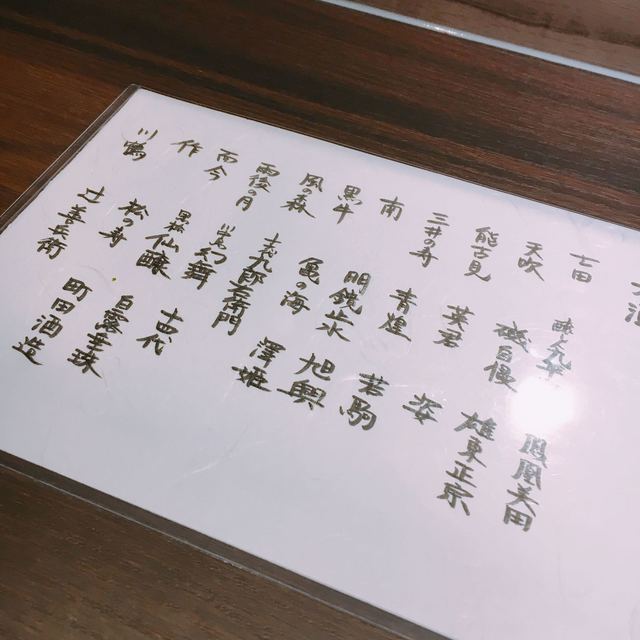 七田
醸し人九平次
鳳凰美田
天吹
磯自慢
雄東正宗
能古見
英君
姿
三井の寿
青煌
若駒
南
明鏡止水
旭興
黒牛
亀の海
澤姫
風森
十六代九郎右衛門
雨後の月
幻舞
而今
黒松仙醸
白露垂珠
作
松の寿
町田酒造
川鶴
辻善兵衛